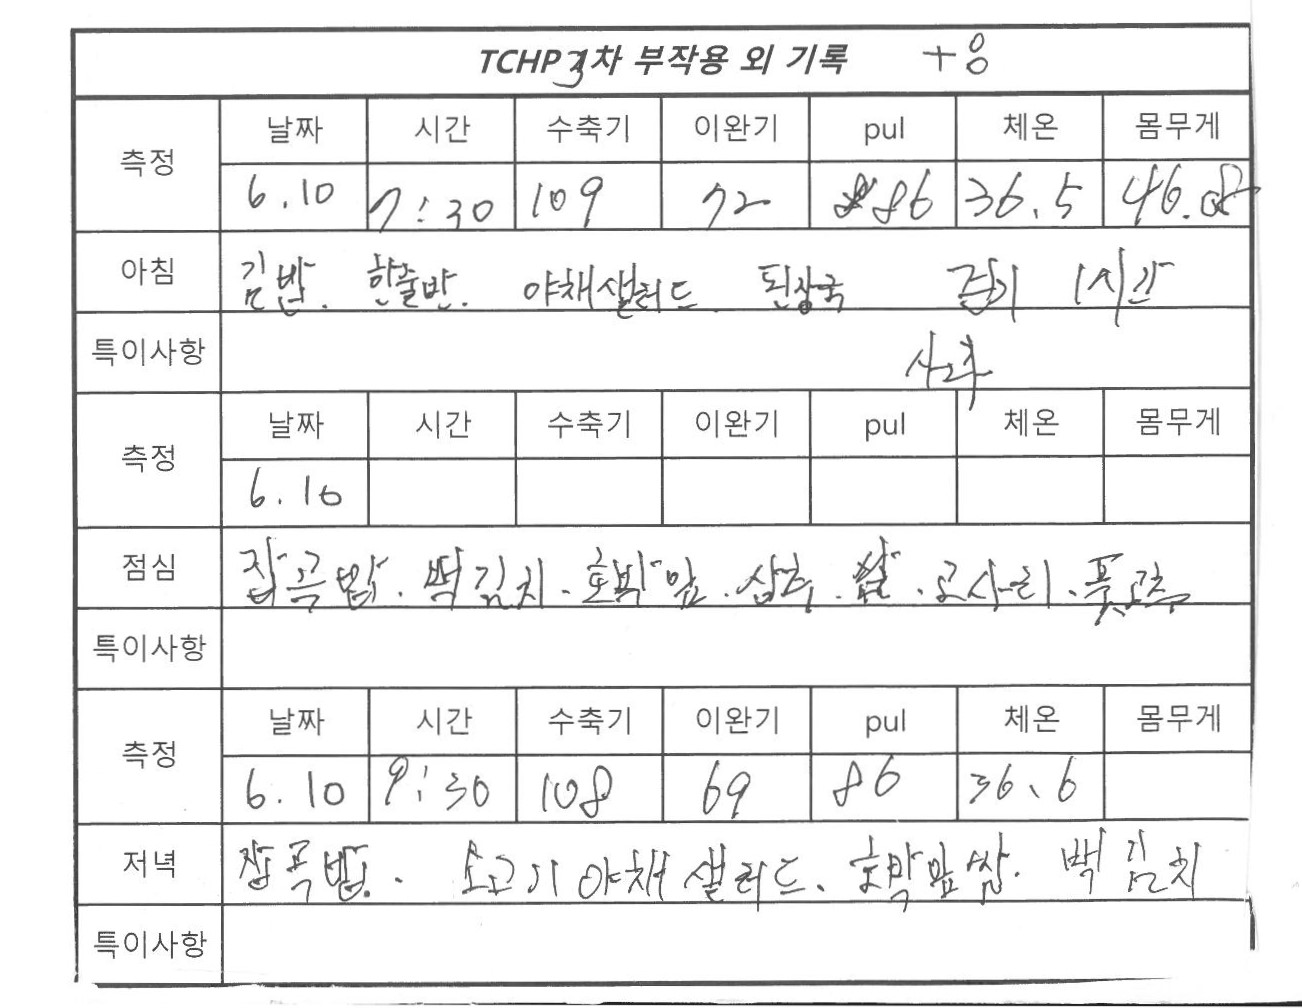 TCHP 3차 부작용 외 기록 +8
측정 날짜 시간 수축기 이완기 pul 체온 몸무게
6.10 7:30 109 72 86 36.5 46.08
아침 김밥. 한줄반. 야채샐러드. 된장국 걷기 1시간
특이사항
측정 날짜 시간 수축기 이완기 pul 체온 몸무게
6.10
점심 잡곡밥. 백김치. 호박잎. 상추. 쌈. 고사리. 풋고추
특이사항
측정 날짜 시간 수축기 이완기 pul 체온 몸무게
6.10 9:30 108 69 86 36.6
저녁 잡곡밥. 소고기야채샐러드. 호박잎쌈. 백김치
특이사항